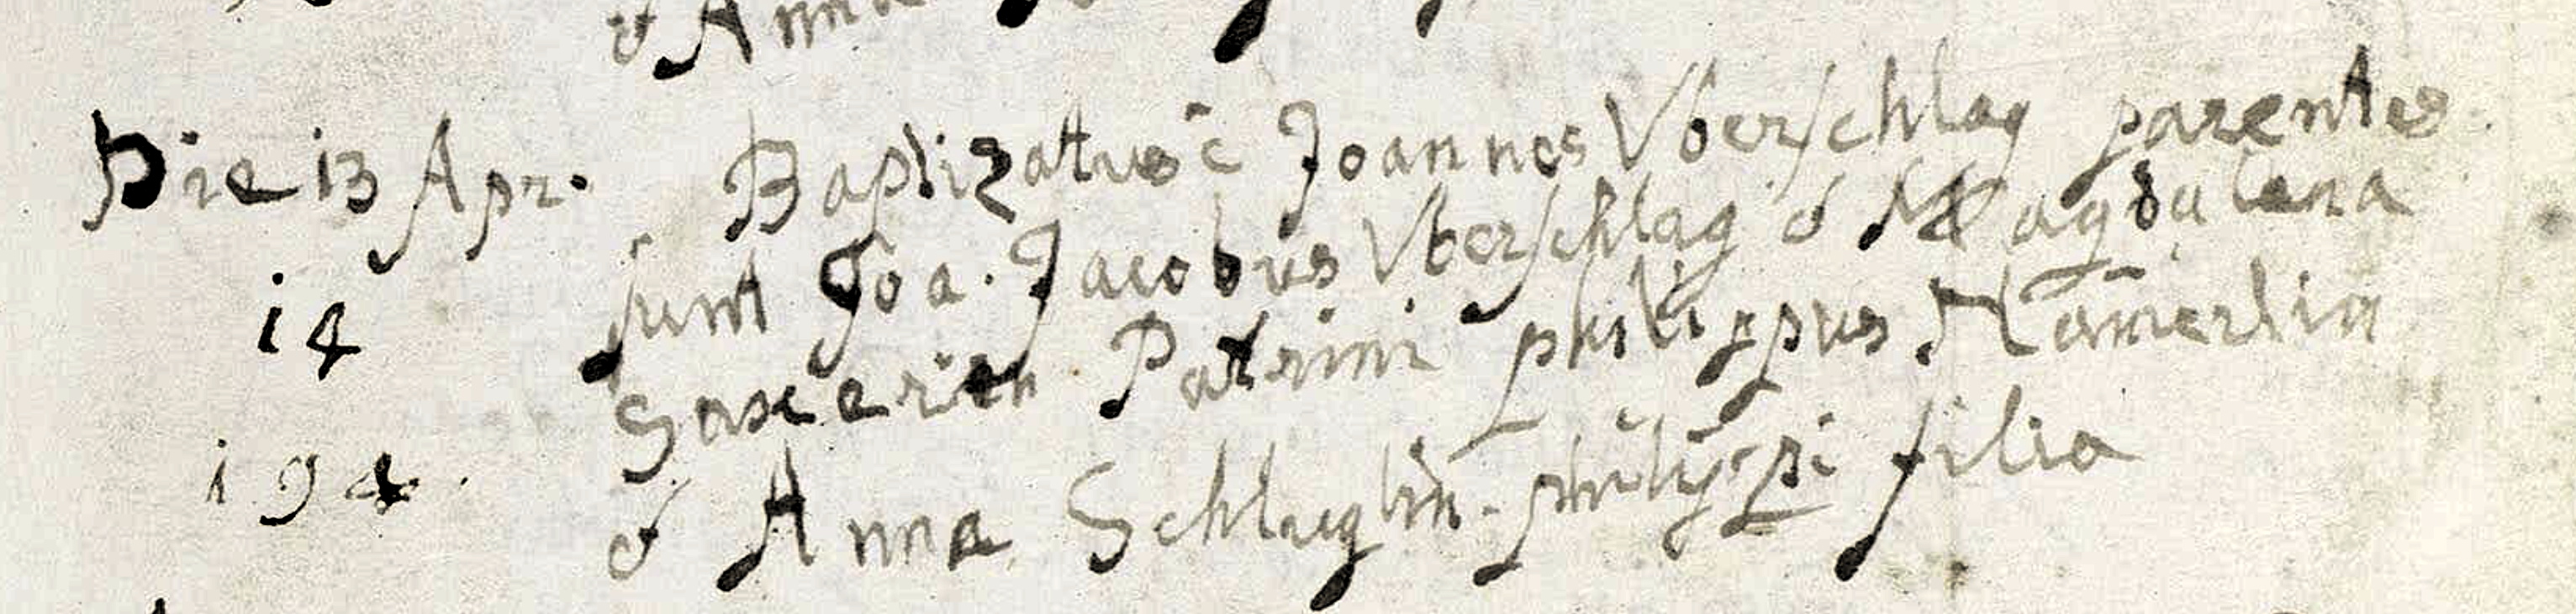 & Anna
Die 13 Apr. Baptizatus ē Joannes Vberschlag parentes
14 sunt Joa. Jacobus Vberschlag & Magdalena
Patrini philippus Hām̄erlin
194. & Anna Schluglin philippi filia